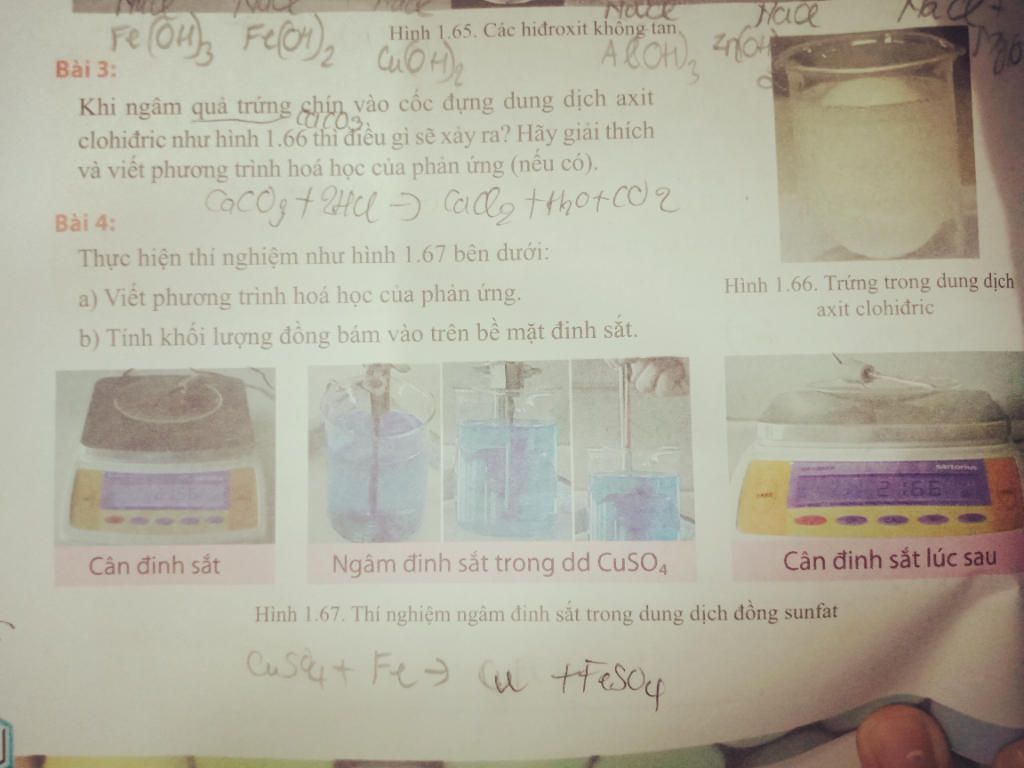 NaCl NaCl
Fe(OH)3 Fe(OH)2 Cu(OH)2 Al(OH)3 Zn(OH)
Hình 1.65. Các hiđroxit không tan
Bài 3:
Khi ngâm quả trứng chín vào cốc đựng dung dịch axit
CaCO3
clohiđric như hình 1.66 thì điều gì sẽ xảy ra? Hãy giải thích
và viết phương trình hoá học của phản ứng (nếu có).
CaCO3 + 2HCl → CaCl2 + H2O + CO2
Hình 1.66. Trứng trong dung dịch
axit clohiđric
Bài 4:
Thực hiện thí nghiệm như hình 1.67 bên dưới:
a) Viết phương trình hoá học của phản ứng.
b) Tính khối lượng đồng bám vào trên bề mặt đinh sắt.
sartorius
Cân đinh sắt
Ngâm đinh sắt trong dd CuSO4
Cân đinh sắt lúc sau
Hình 1.67. Thí nghiệm ngâm đinh sắt trong dung dịch đồng sunfat
CuSO4 + Fe → Cu + FeSO4